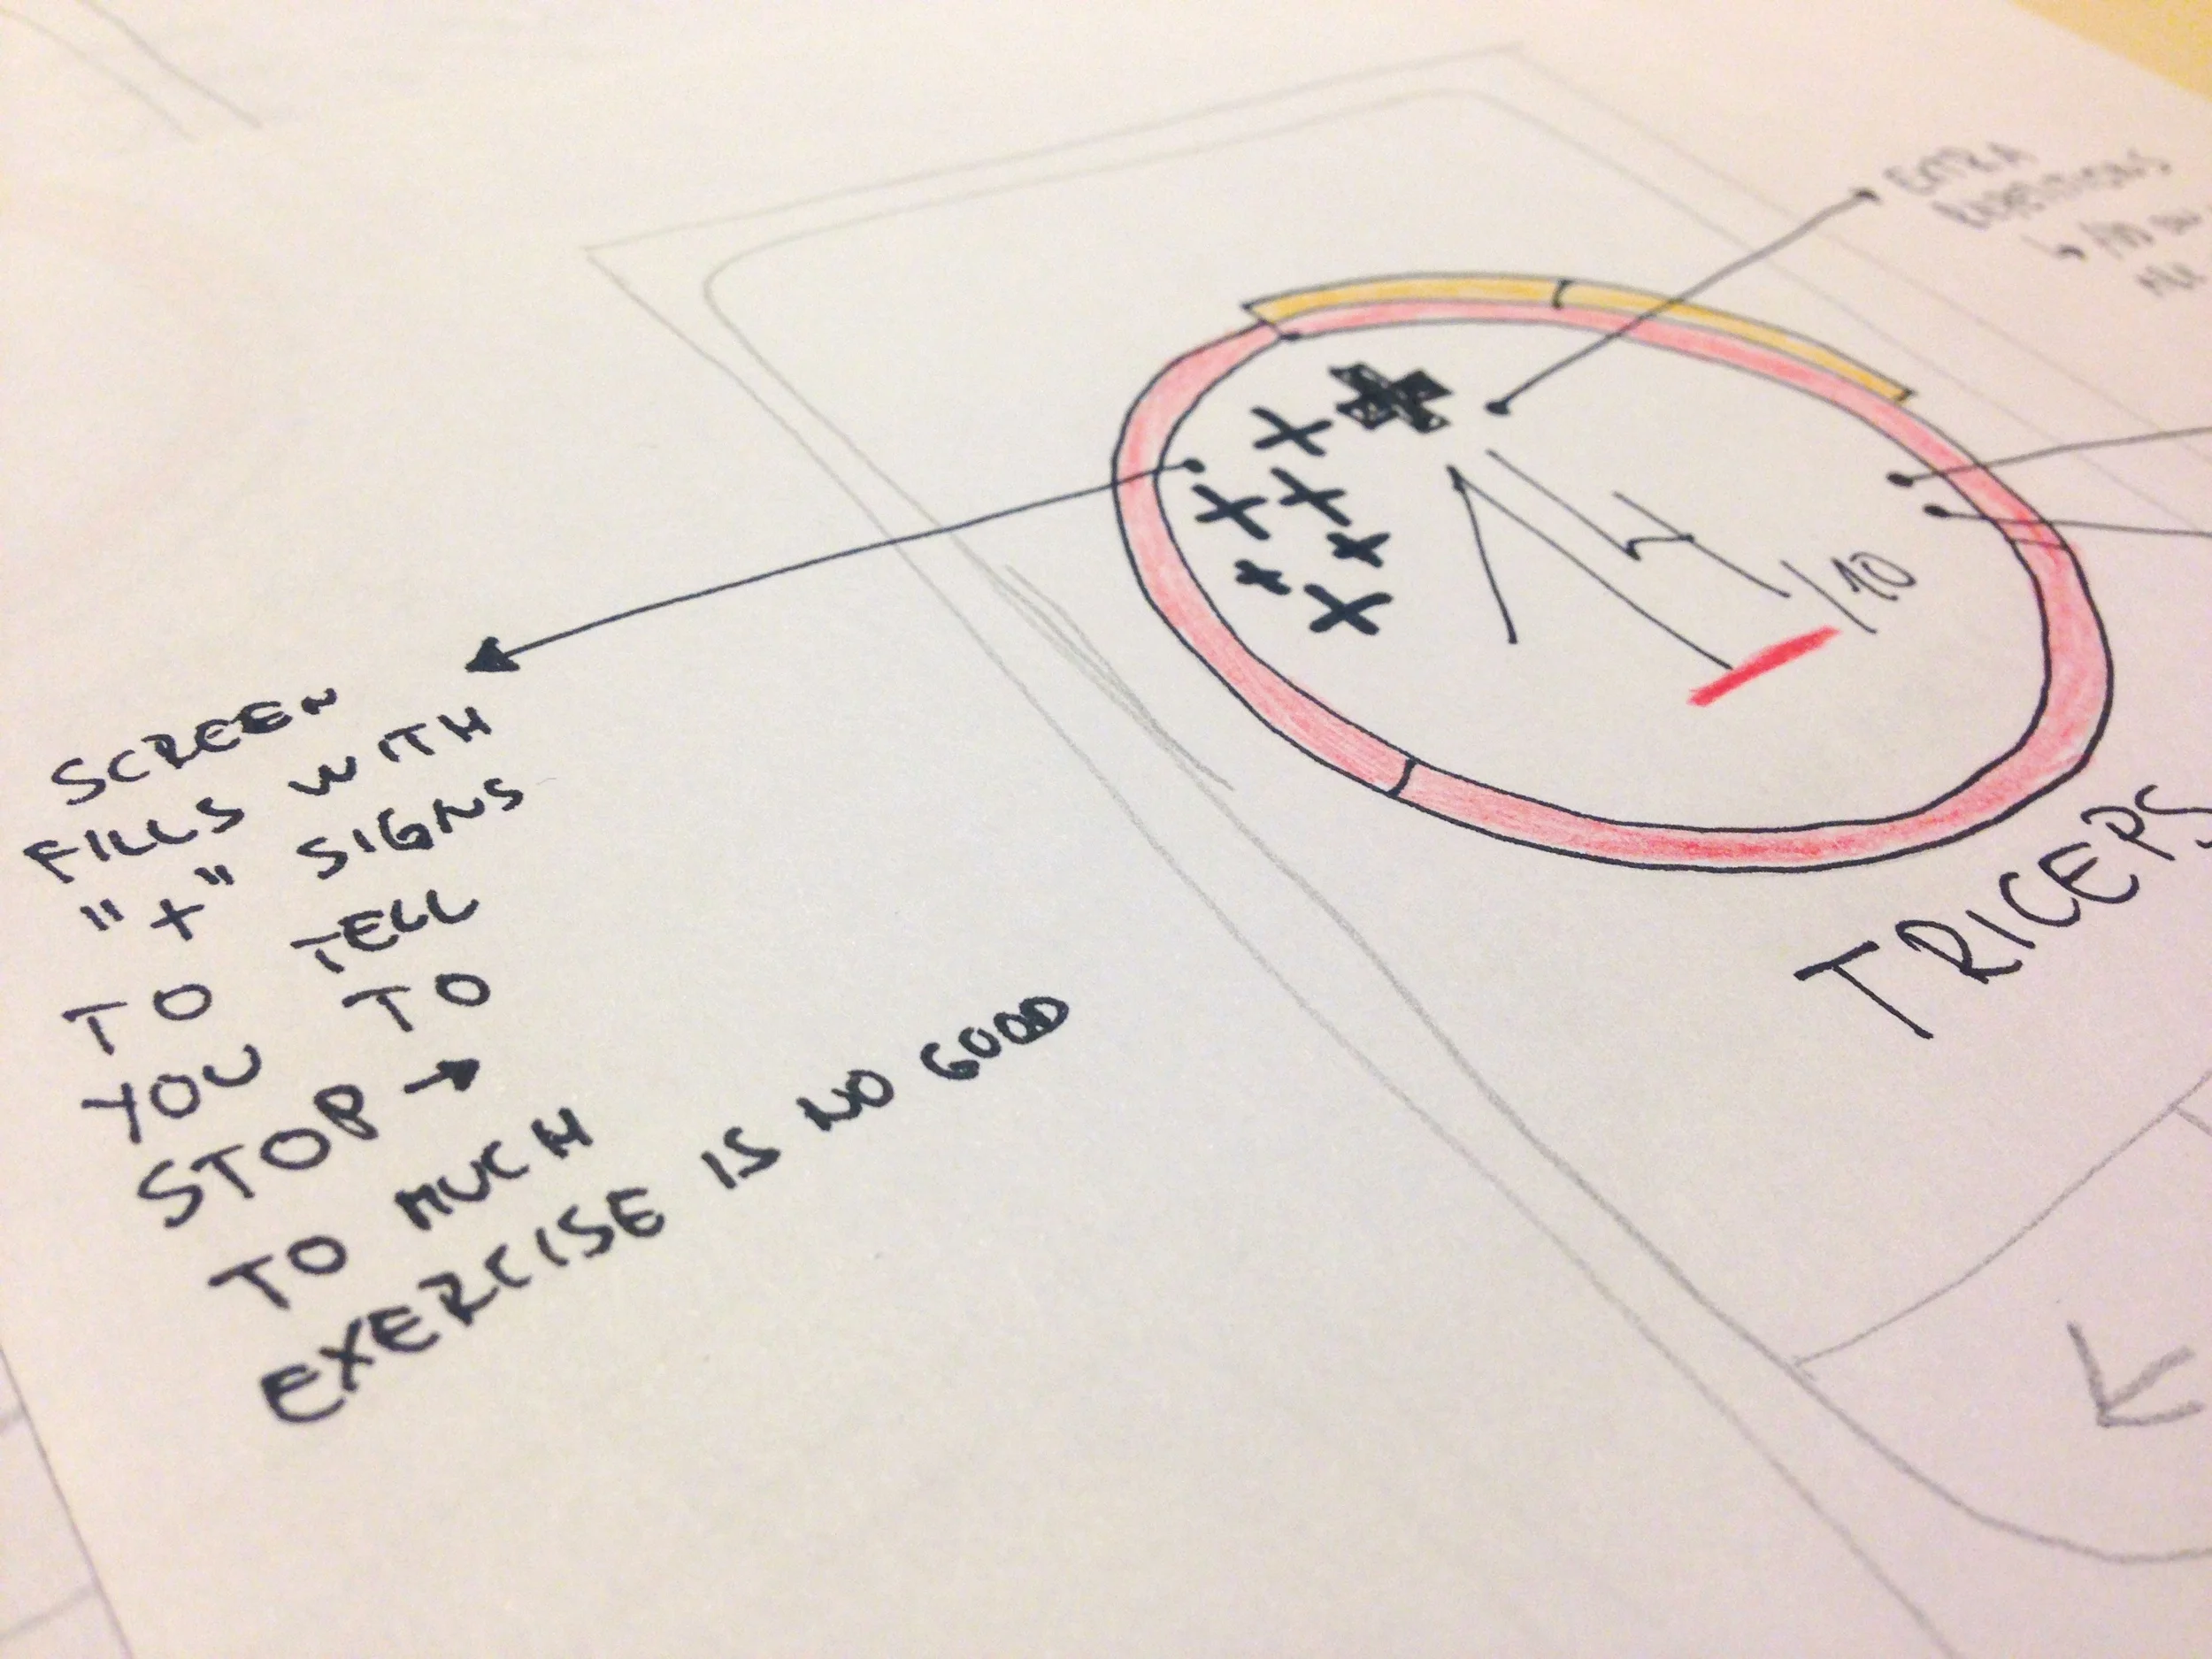 EXTRA
REPETITIONS
+
+ +
+ +
+ +
+
15/10
TRICEPS
SCREEN
FILLS WITH
"+" SIGNS
TO TELL
YOU TO
STOP →
TO MUCH
EXERCISE IS NO GOOD